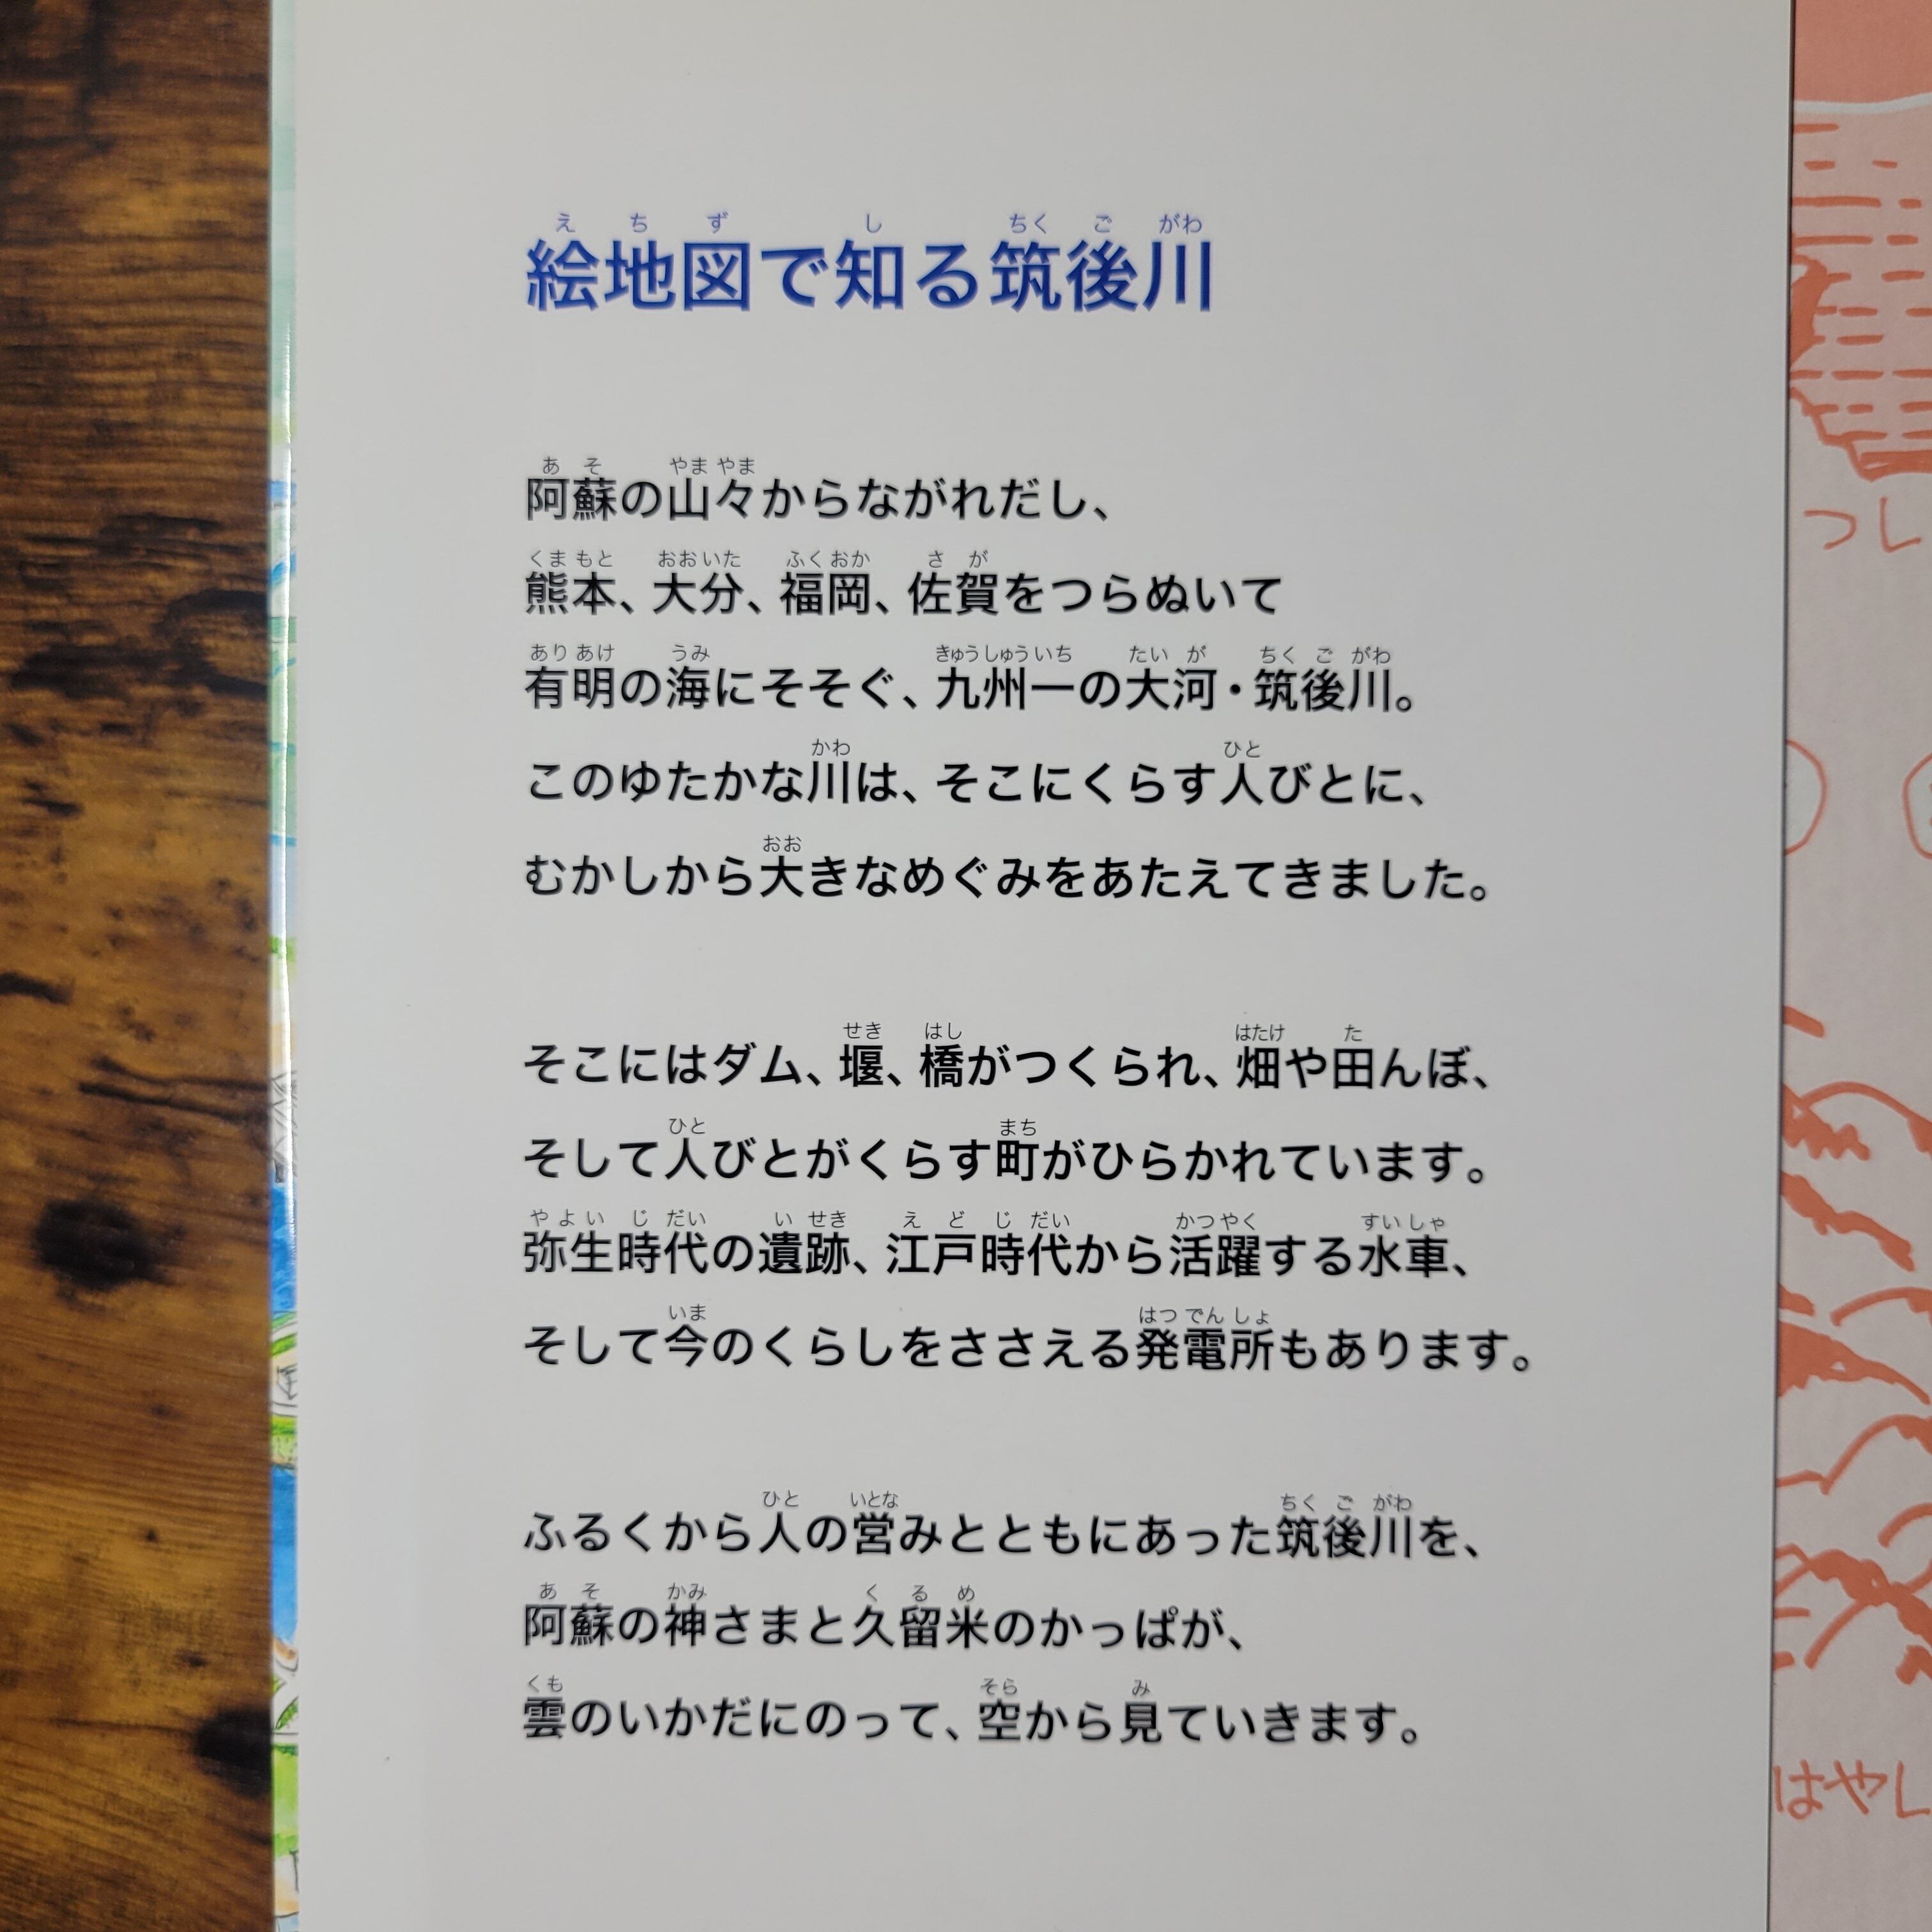 絵地図で知る筑後川
阿蘇の山々からながれだし、
熊本、大分、福岡、佐賀をつらぬいて
有明の海にそそぐ、九州一の大河・筑後川。
このゆたかな川は、そこにくらす人びとに、
むかしから大きなめぐみをあたえてきました。
そこにはダム、堰、橋がつくられ、畑や田んぼ、
そして人びとがくらす町がひらかれています。
弥生時代の遺跡、江戸時代から活躍する水車、
そして今のくらしをささえる発電所もあります。
ふるくから人の営みとともにあった筑後川を、
阿蘇の神さまと久留米のかっぱが、
雲のいかだにのって、空から見ていきます。
つし
はやし